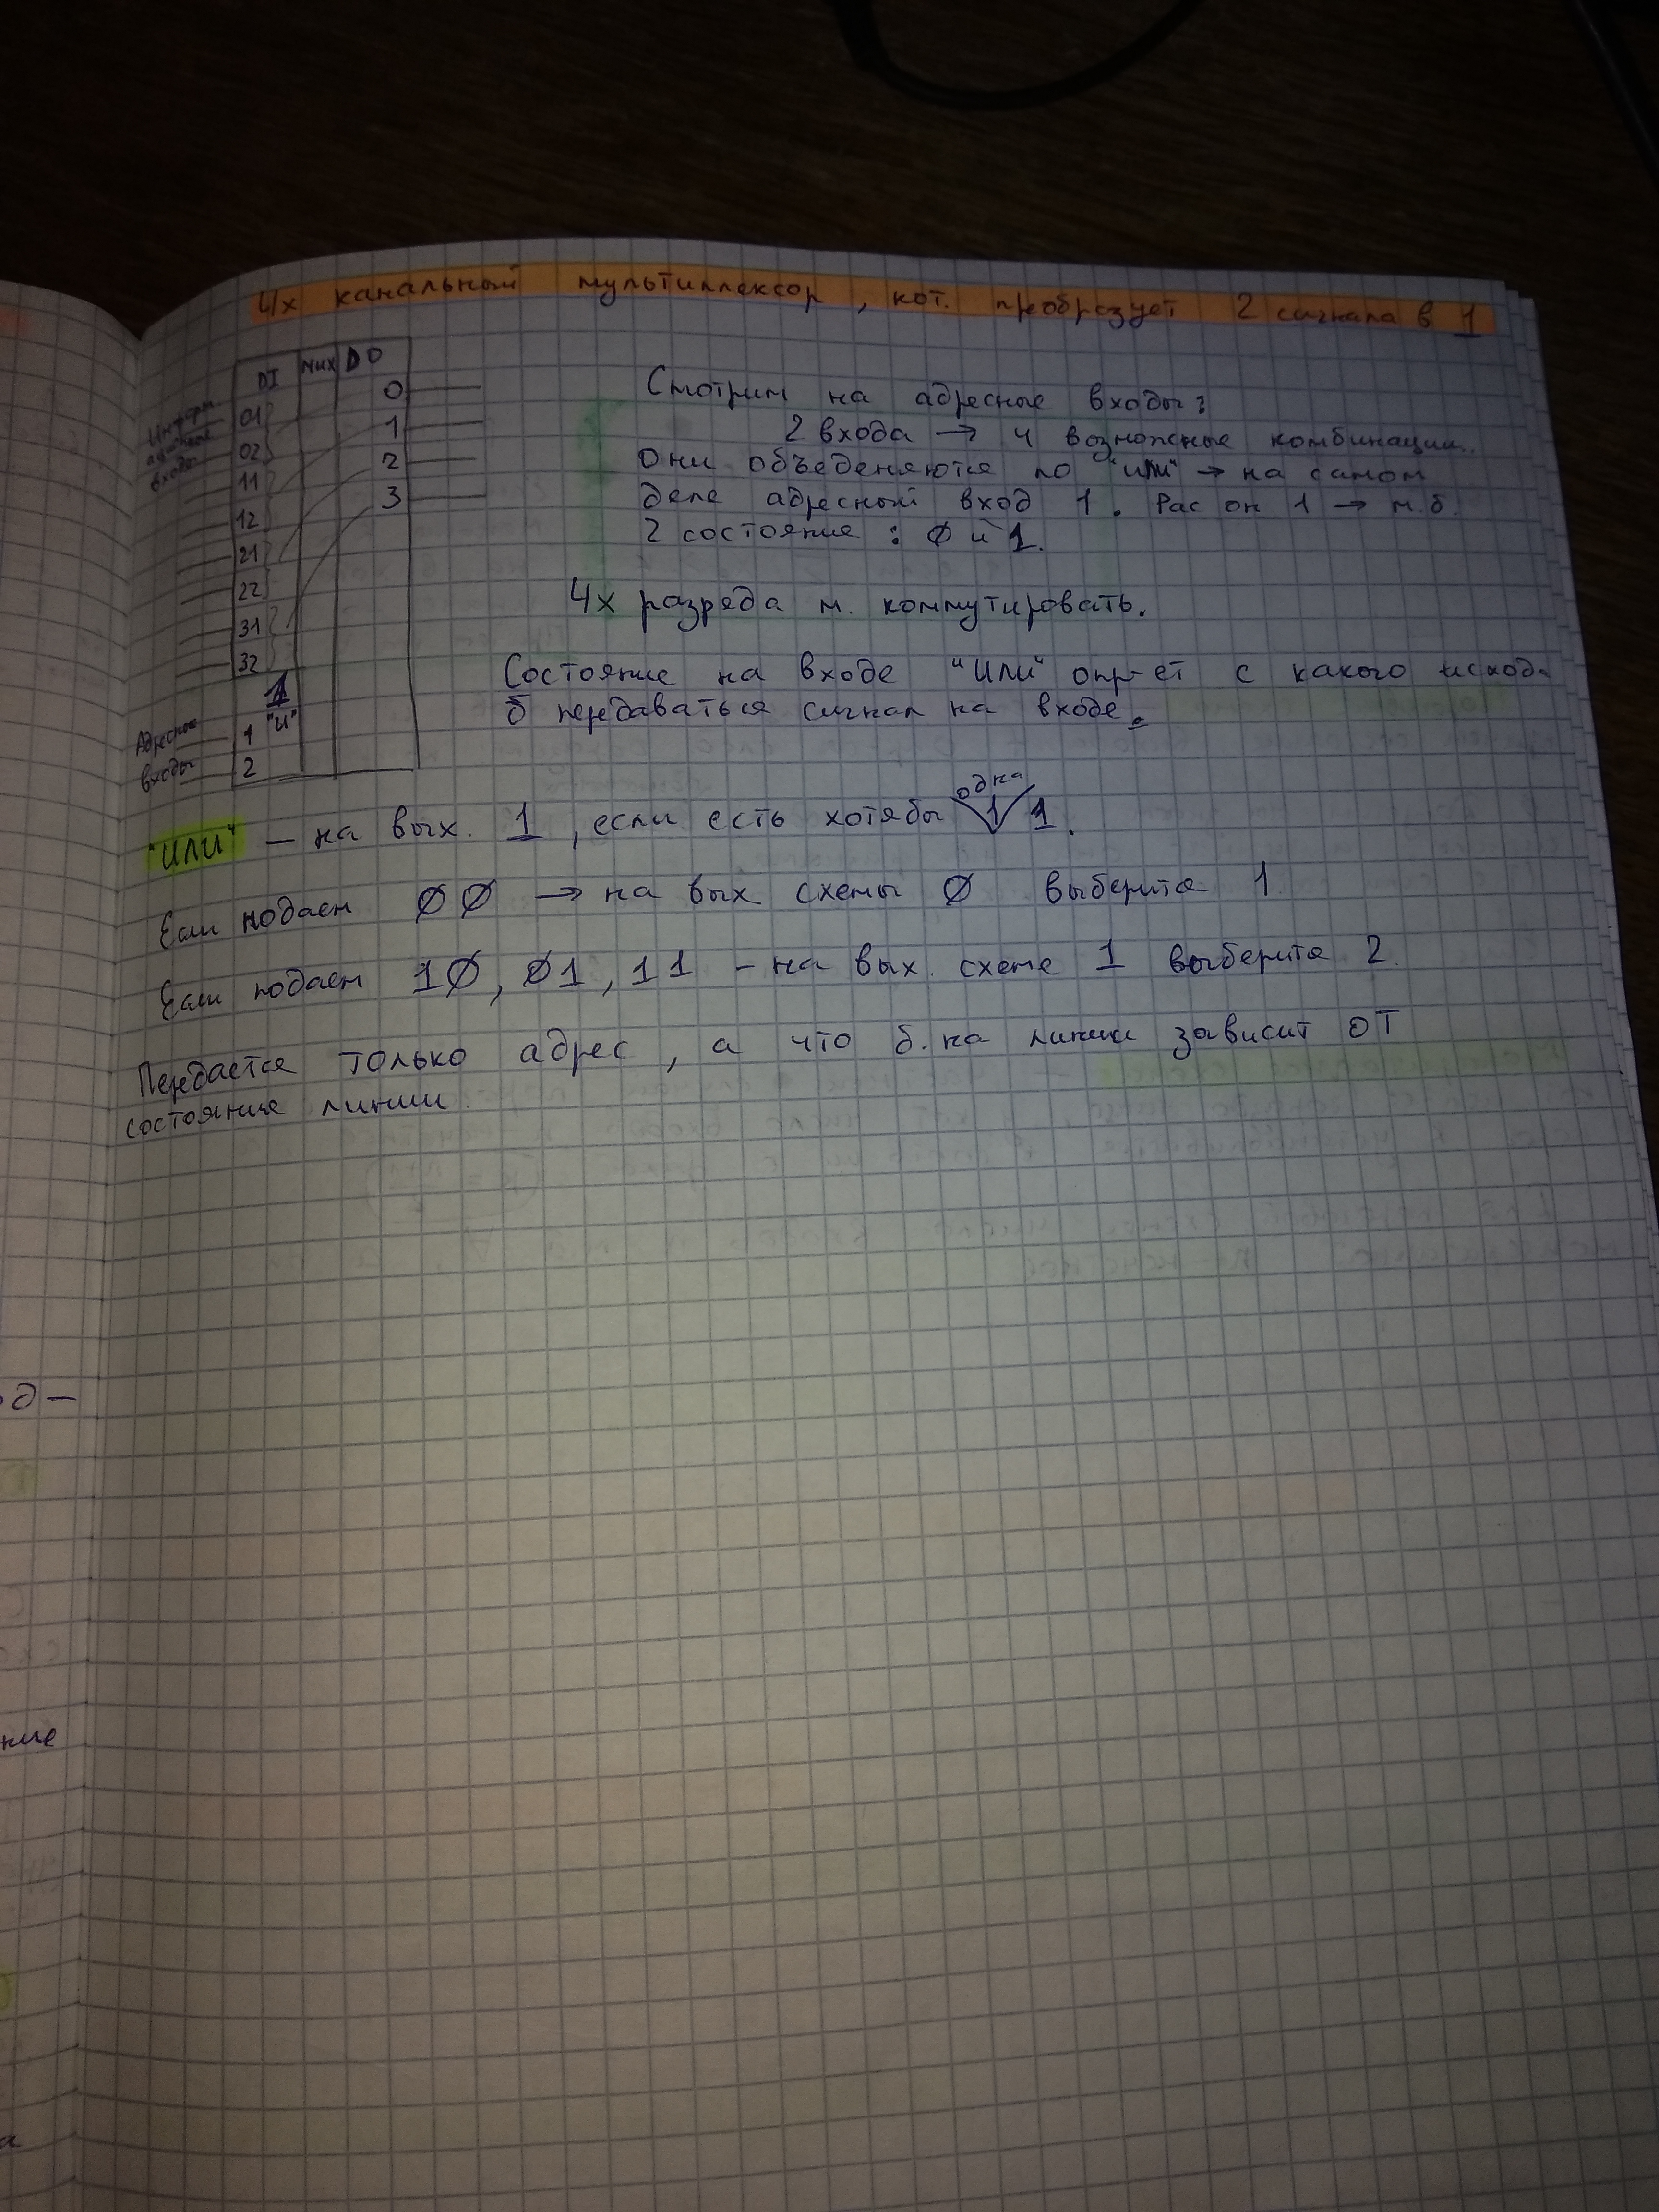 4х канальный мультиплексор, кот. преобрзует 2 сигнала в 1
DI MUX DO
Информ.
ационные
входы
01
02
11
12
21
22
31
32
0
1
2
3
1
"И"
Адресные
входы
1
2
Смотрим на адресные входы:
2 входа → 4 возможные комбинации.
Они объеденяются по "или" → на самом
деле адресный вход 1. Рас он 1 → м.б.
2 состояние : 0 и 1.
4х разряда м. коммутировать.
Состояние на входе "Или" опр-ет с какого исход.
б передаваться сигнал на входе.
"ИЛИ" – на вых. 1, если есть хотябы одна 1.
Если подаем 00 → на вых схемы 0 выберится 1
Если подаем 10, 01, 11 – на вых. схеме 1 выберится 2.
Передается только адрес, а что б. на линии зависит от
состояние линии
од–
ние